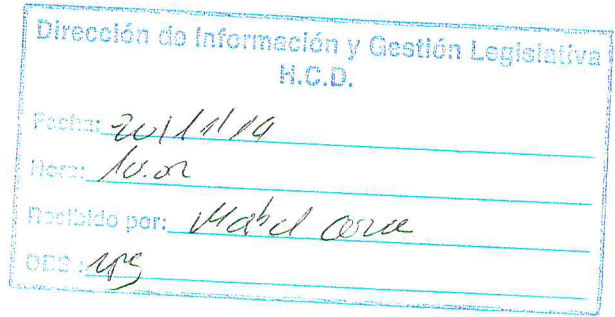 Dirección de Información y Gestión Legislativa
H.C.D.
Fecha: 20/11/19
Hora: 10.02
Recibido por: Mabel
OBS: